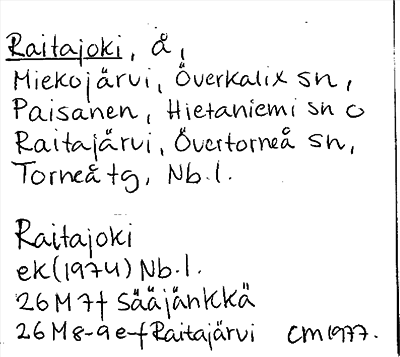 Raitajoki, å,
Miekojärvi, Överkalix sn,
Paisanen, Hietaniemi sn o
Raitajärvi, Övertorneå sn,
Torneå tg, Nb.l.
Raitajoki
ek(1974) Nb.l.
26M7f Sääjänkkä
26M8-9e-f Raitajärvi CM1977.